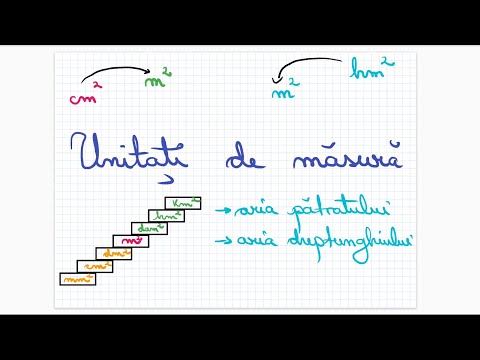 cm² m² m² hm²
Unități de măsură
km²
hm²
dam²
m²
dm²
cm²
mm²
→ aria pătratului
→ aria dreptunghiului